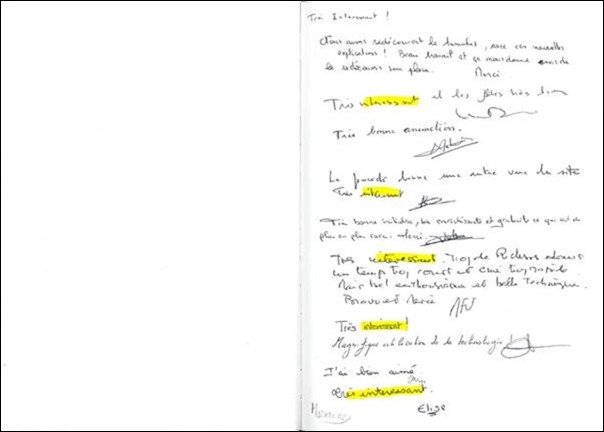 Très Intéressant !
Nous avons redécouvert le tumulus, avec ces nouvelles
explications ! Beau travail et ça nous donne envie de
le redécouvrir sous
Merci
Très intéressant et les très
Très bonne animation.
Le procédé donne une autre vue du site
Très intéressant
Très bonne initiative, très enrichissante et gratuite ce qui est de
plus en plus rare. Merci.
Très intéressant. Trop de
un temps trop court et ciné trop rapide
Mais bel enthousiasme et belle technique
Bravo et Merci
Très intéressant !
Magnifique utilisation de la technologie
J'ai bien aimé
Très intéressant.
Elise